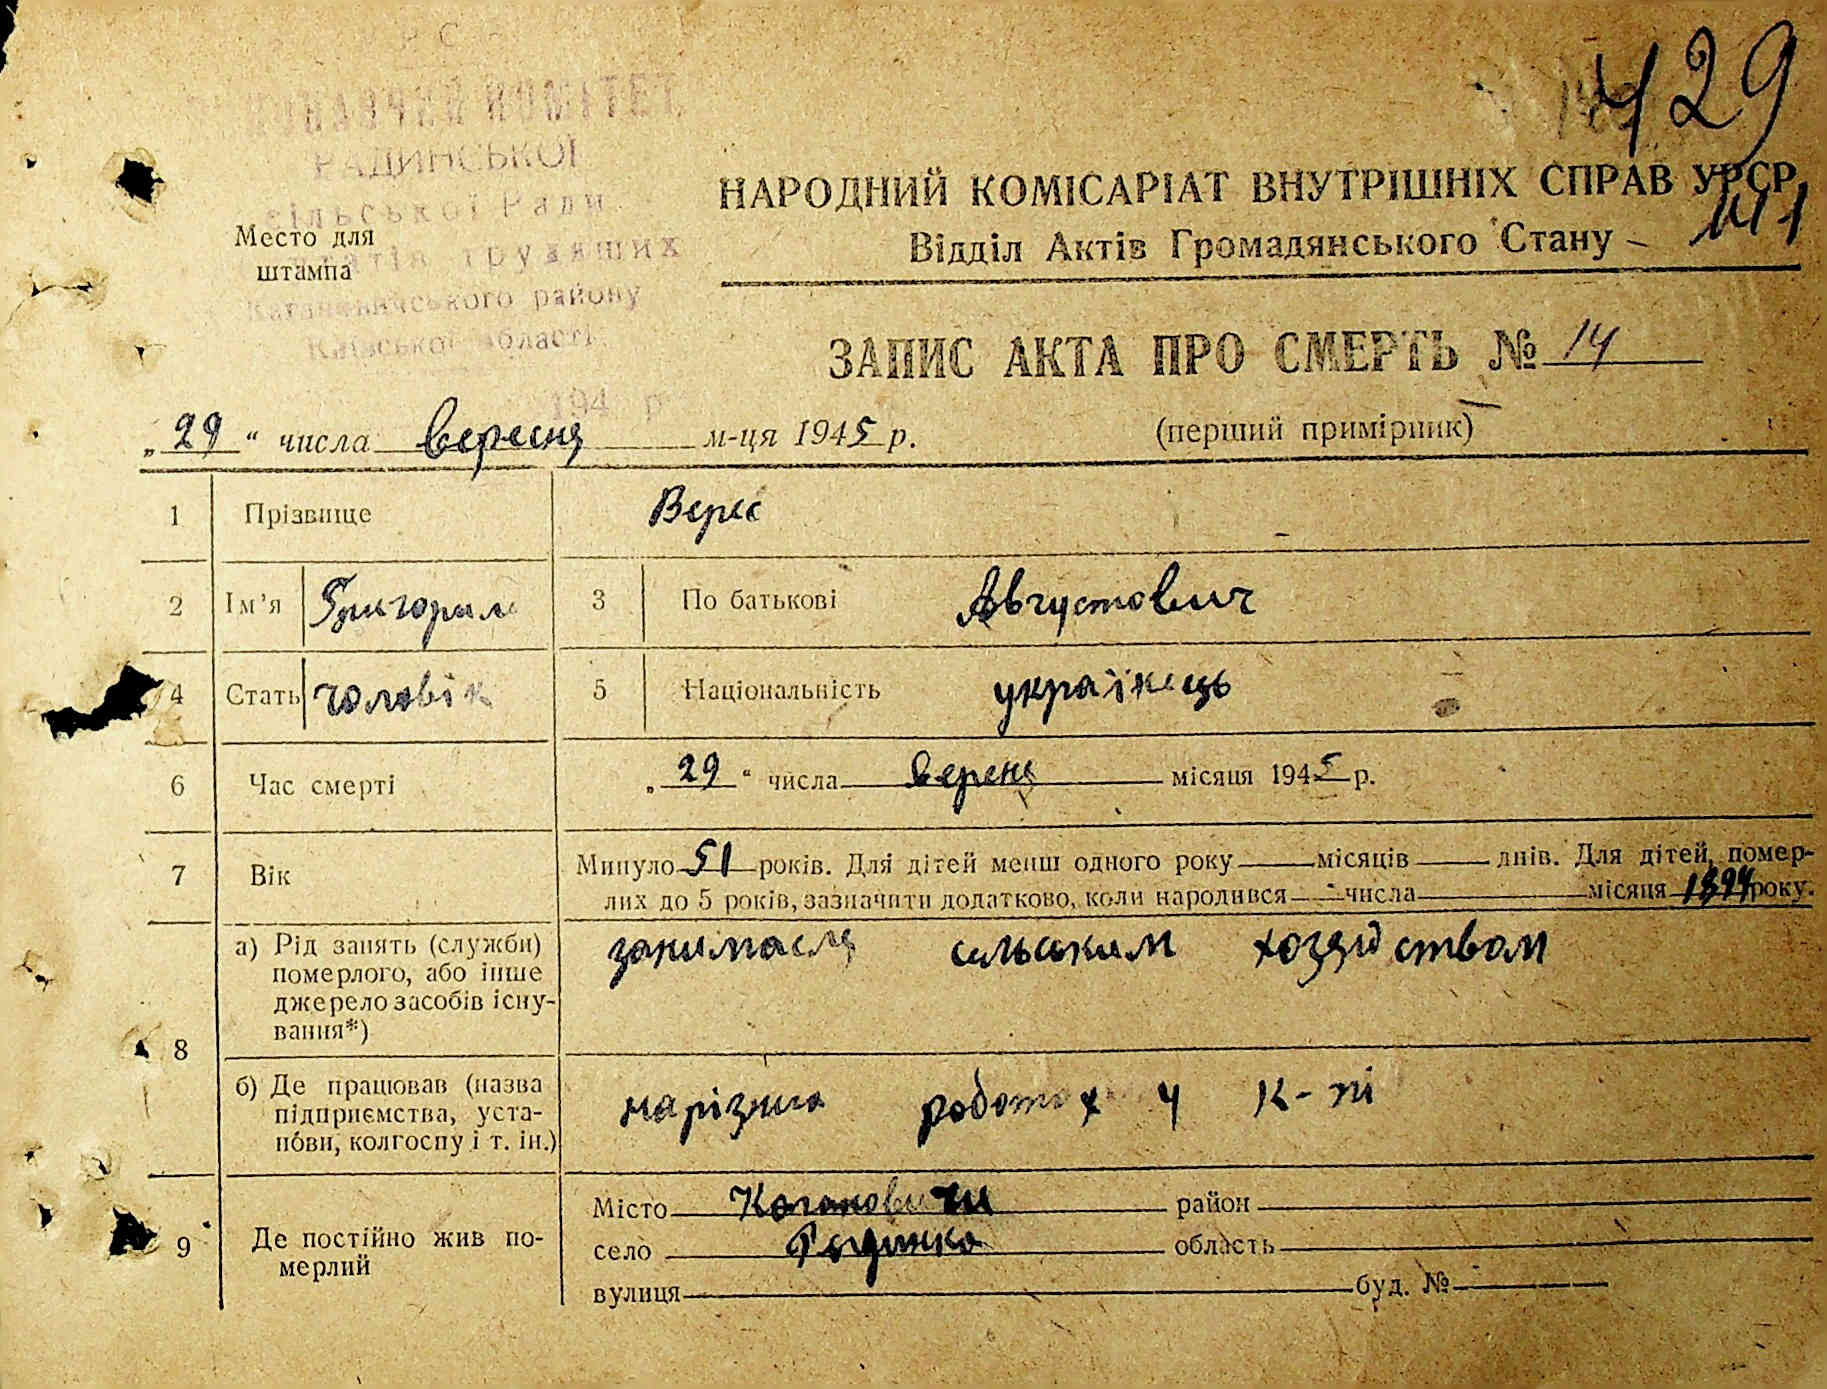 429
КОНАВЧИЙ КОМІТЕТ
РАДИНСЬКОЇ
сільської Ради
трудящих
Кагановичського району
Київської області
194 р
Место для
штампа
НАРОДНИЙ КОМІСАРІАТ ВНУТРІШНІХ СПРАВ УРСР
Відділ Актів Громадянського Стану
ЗАПИС АКТА ПРО СМЕРТЬ № 14
„29“ числа вересня м-ця 1945 р.
(перший примірник)
1 Прізвище Верес
2 Ім’я Григорий 3 По батькові Августович
4 Стать чоловік 5 Національність українець
6 Час смерті „29“ числа верення місяця 1945 р.
7 Вік Минуло 51 років. Для дітей менш одного року місяців днів. Для дітей, помер-
лих до 5 років, зазначити додатково, коли народився числа місяця 1894 року.
8 а) Рід занять (служби)
померлого, або інше
джерело засобів існу-
вання*)
занимаеся сільським хозяйством
б) Де працював (назва
підприємства, уста-
нови, колгоспу і т. ін.)
на різних роботах у к-пі
9 Де постійно жив по-
мерлий
Місто Кагановичи район
село Радинка область
вулиця буд. №